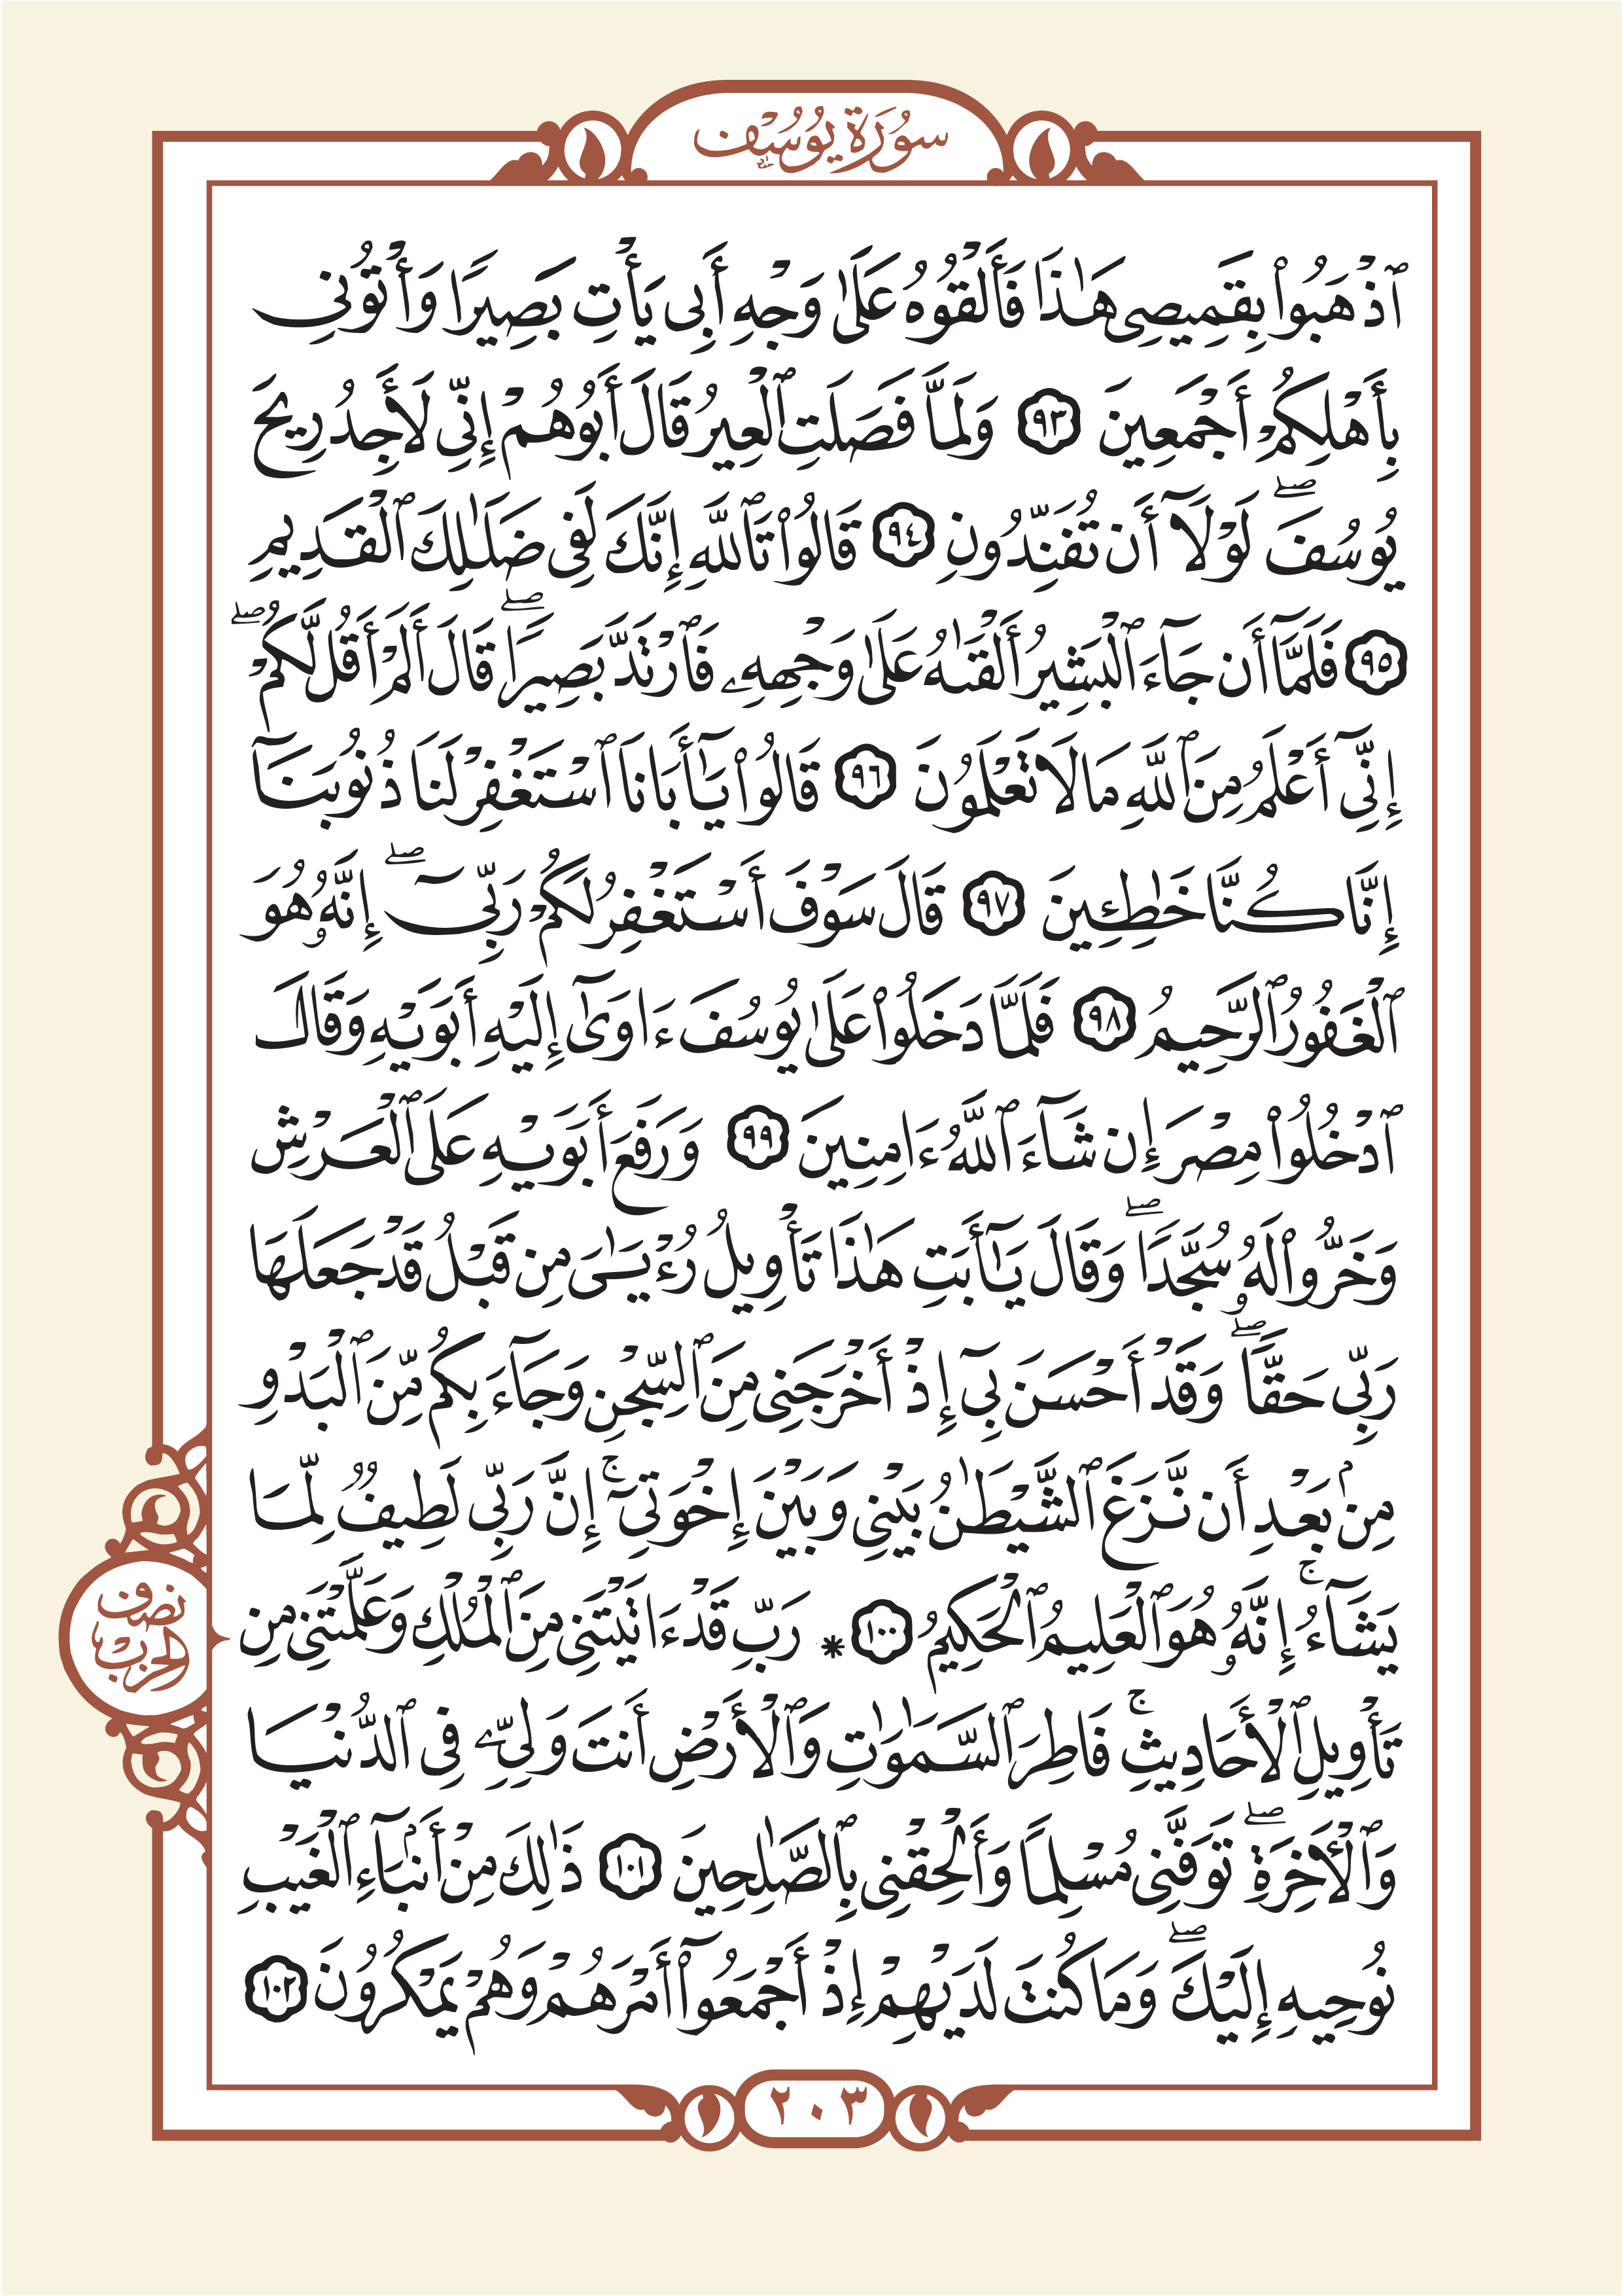 سُورَةُ يُوسُف
ٱذْهَبُوا۟ بِقَمِيصِى هَـٰذَا فَأَلْقُوهُ عَلَىٰ وَجْهِ أَبِى يَأْتِ بَصِيرًا وَأْتُونِى
بِأَهْلِكُمْ أَجْمَعِينَ ٩٣ وَلَمَّا فَصَلَتِ ٱلْعِيرُ قَالَ أَبُوهُمْ إِنِّى لَأَجِدُ رِيحَ
يُوسُفَ ۖ لَوْلَآ أَن تُفَنِّدُونِ ٩٤ قَالُوا۟ تَٱللَّهِ إِنَّكَ لَفِى ضَلَـٰلِكَ ٱلْقَدِيمِ
٩٥ فَلَمَّآ أَن جَآءَ ٱلْبَشِيرُ أَلْقَىٰهُ عَلَىٰ وَجْهِهِۦ فَٱرْتَدَّ بَصِيرًا ۖ قَالَ أَلَمْ أَقُل لَّكُمْ ۖ
إِنِّىٓ أَعْلَمُ مِنَ ٱللَّهِ مَا لَا تَعْلَمُونَ ٩٦ قَالُوا۟ يَـٰٓأَبَانَا ٱسْتَغْفِرْ لَنَا ذُنُوبَنَآ
إِنَّا كُنَّا خَـٰطِـِٔينَ ٩٧ قَالَ سَوْفَ أَسْتَغْفِرُ لَكُمْ رَبِّىٓ ۖ إِنَّهُۥ هُوَ
ٱلْغَفُورُ ٱلرَّحِيمُ ٩٨ فَلَمَّا دَخَلُوا۟ عَلَىٰ يُوسُفَ ءَاوَىٰٓ إِلَيْهِ أَبَوَيْهِ وَقَالَ
ٱدْخُلُوا۟ مِصْرَ إِن شَآءَ ٱللَّهُ ءَامِنِينَ ٩٩ وَرَفَعَ أَبَوَيْهِ عَلَى ٱلْعَرْشِ
وَخَرُّوا۟ لَهُۥ سُجَّدًا ۖ وَقَالَ يَـٰٓأَبَتِ هَـٰذَا تَأْوِيلُ رُءْيَـٰىَ مِن قَبْلُ قَدْ جَعَلَهَا
رَبِّى حَقًّا ۖ وَقَدْ أَحْسَنَ بِىٓ إِذْ أَخْرَجَنِى مِنَ ٱلسِّجْنِ وَجَآءَ بِكُم مِّنَ ٱلْبَدْوِ
مِنۢ بَعْدِ أَن نَّزَغَ ٱلشَّيْطَـٰنُ بَيْنِى وَبَيْنَ إِخْوَتِىٓ ۚ إِنَّ رَبِّى لَطِيفٌ لِّمَا
يَشَآءُ ۚ إِنَّهُۥ هُوَ ٱلْعَلِيمُ ٱلْحَكِيمُ ١٠٠ * رَبِّ قَدْ ءَاتَيْتَنِى مِنَ ٱلْمُلْكِ وَعَلَّمْتَنِى مِن
تَأْوِيلِ ٱلْأَحَادِيثِ ۚ فَاطِرَ ٱلسَّمَـٰوَٰتِ وَٱلْأَرْضِ أَنتَ وَلِىِّۦ فِى ٱلدُّنْيَا
وَٱلْـَٔاخِرَةِ ۖ تَوَفَّنِى مُسْلِمًا وَأَلْحِقْنِى بِٱلصَّـٰلِحِينَ ١٠١ ذَٰلِكَ مِنْ أَنۢبَآءِ ٱلْغَيْبِ
نُوحِيهِ إِلَيْكَ ۖ وَمَا كُنتَ لَدَيْهِمْ إِذْ أَجْمَعُوٓا۟ أَمْرَهُمْ وَهُمْ يَمْكُرُونَ ١٠٢
نصف
الحزب
٢٠٣